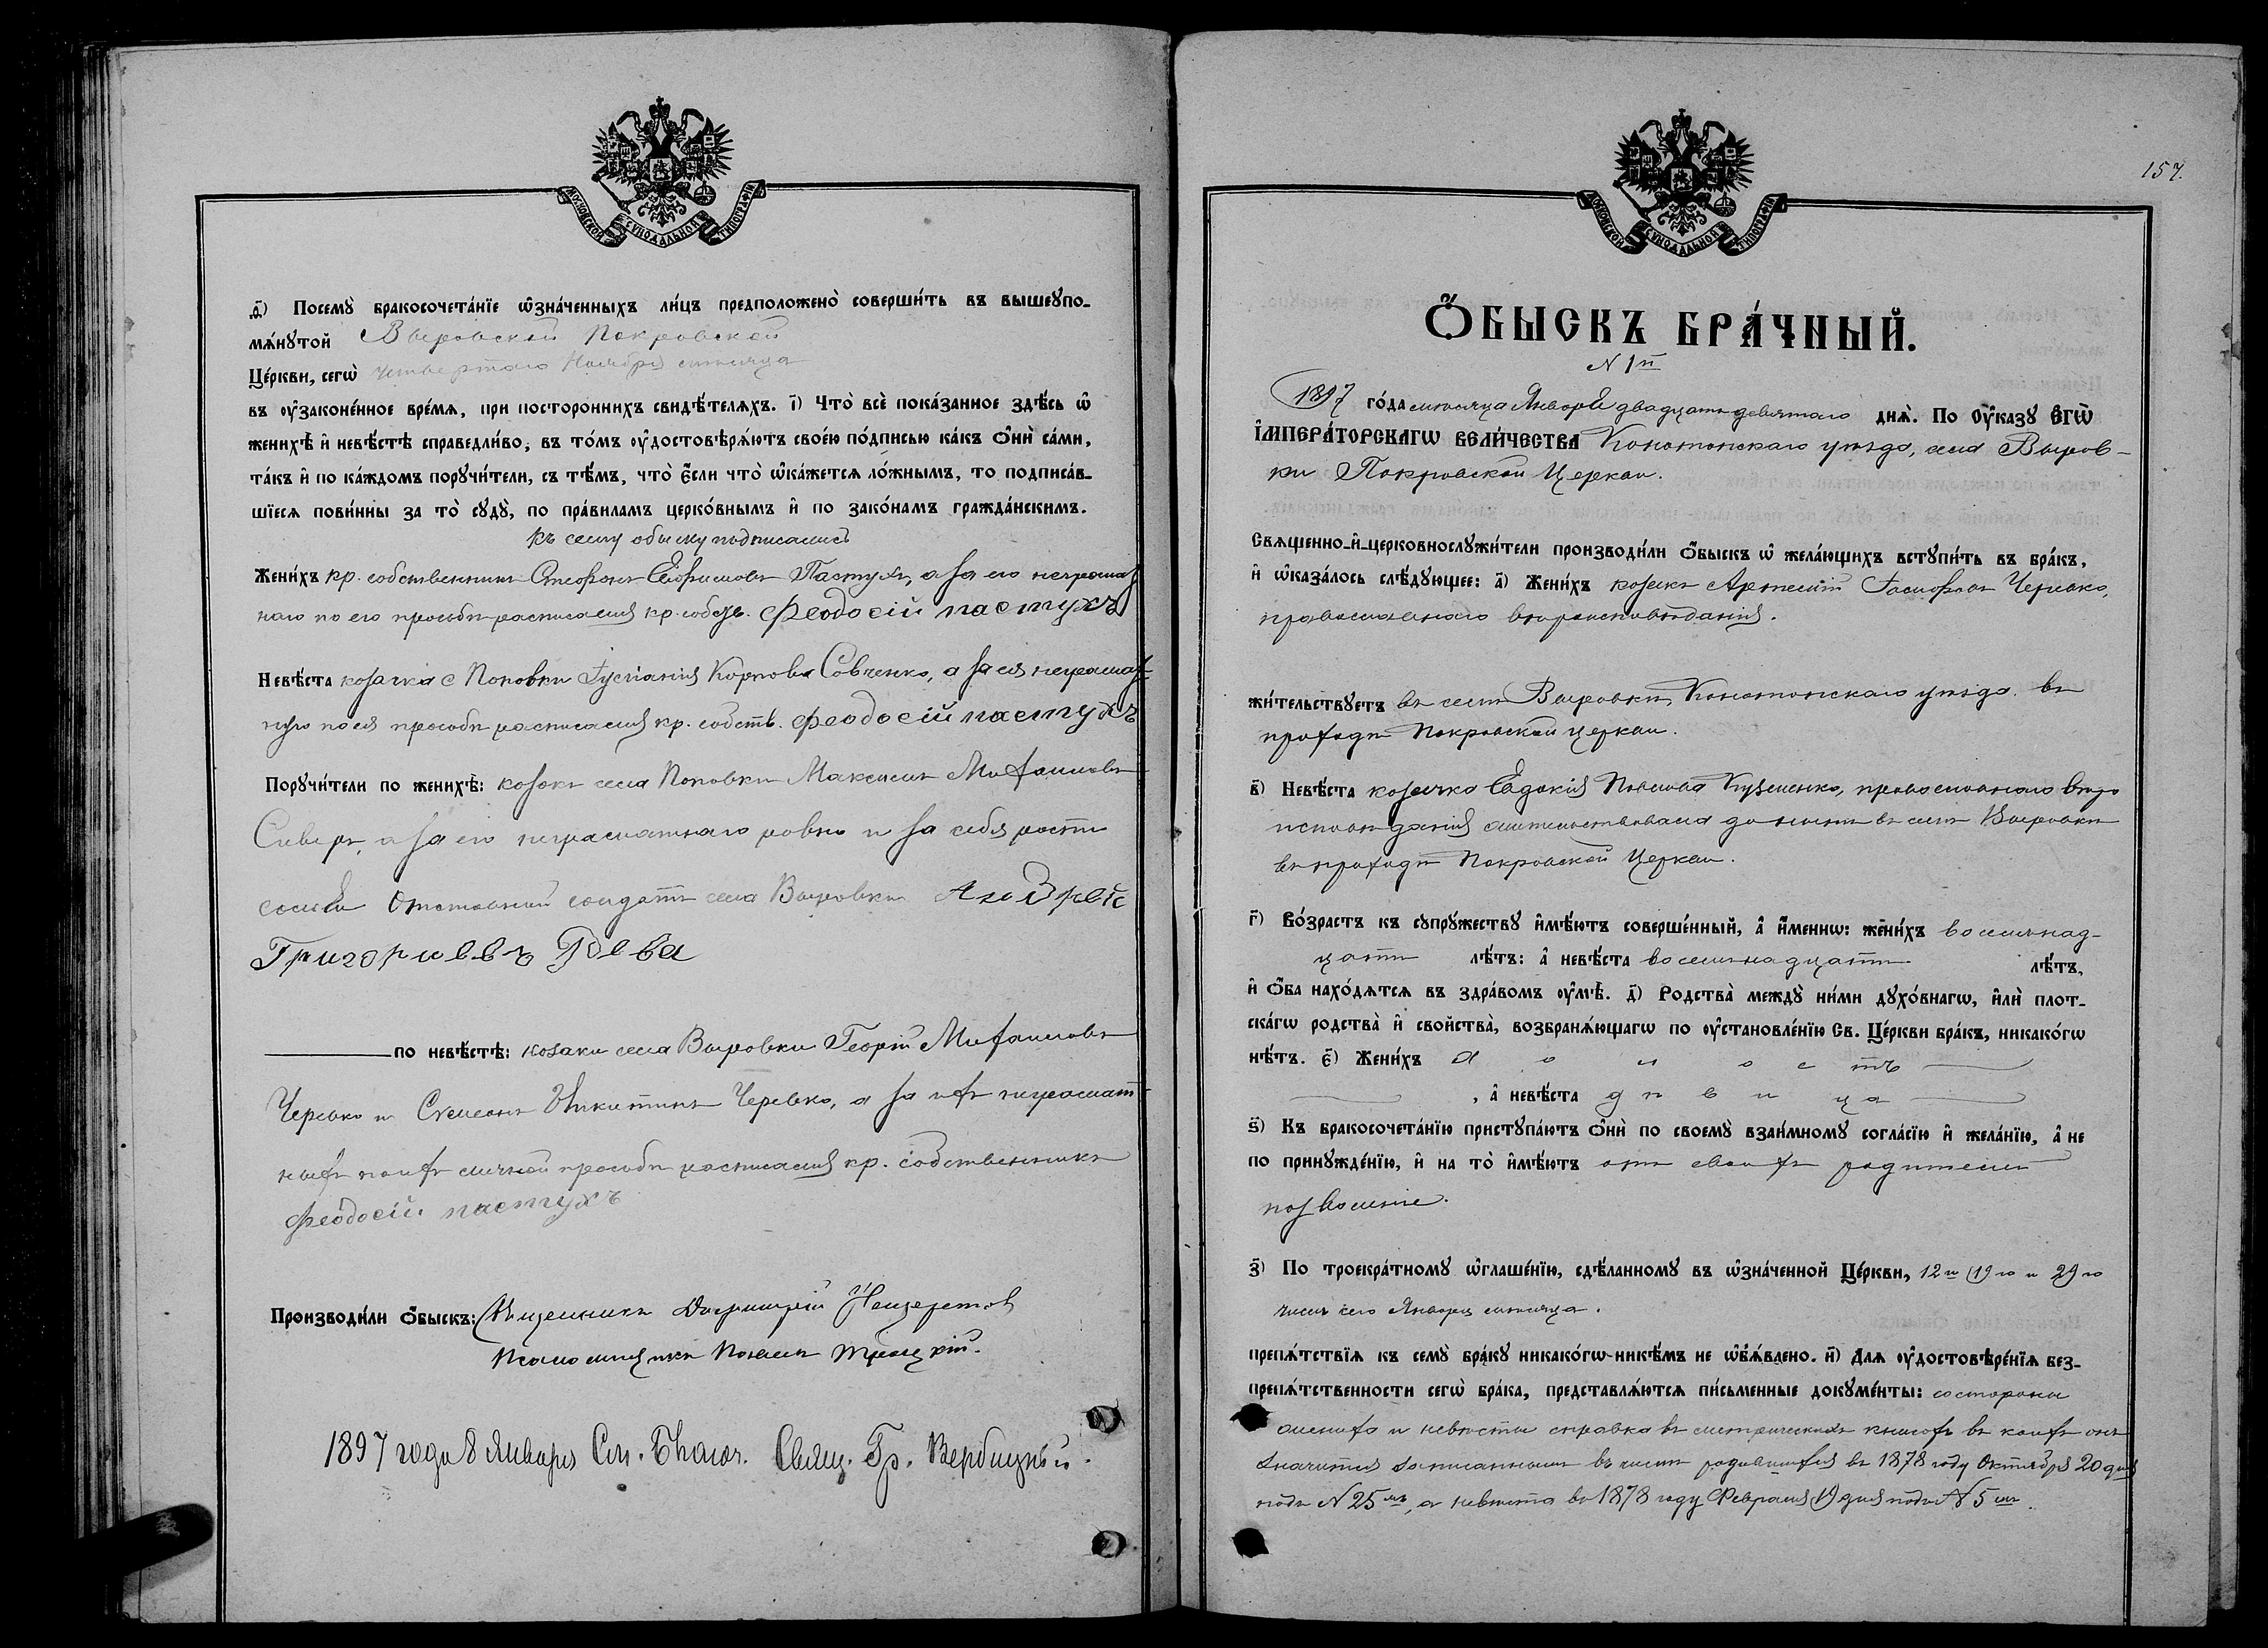 МОСКОВСКОЙ СѴНОДАЛЬНОЙ ТИПОГРАФІИ
д҃) Посемꙋ̀ бракосочета́нїе ѡ҆зна́ченныхъ ли́цъ предположено̀ соверши́ть въ вышеꙋпо-
мѧ́нꙋтой Выровской Покровской
Це́ркви, сегѡ̀ четвертаго Ноября месяца
въ ᲂу҆законе́нное вре́мѧ, при посторо́ннихъ свидѣ́телѧхъ. і҃) Что̀ всѐ пока́занное здѣ́сь ѡ҆
женихѣ̀ и҆ невѣ́стѣ справедли́во, въ то́мъ ᲂу҆достовѣрѧ́ютъ свое́ю по́дписью ка́къ ѻ҆нѝ са́ми,
та́къ и҆ по ка́ждомъ порꙋчи́тели, съ тѣ́мъ, что̀ є҆́сли что̀ ѡ҆ка́жется ло́жнымъ, то подписа́в-
шїеся пови́нны за то̀ сꙋдꙋ̀, по пра́виламъ церко́внымъ и҆ по зако́намъ гражда́нскимъ.
Къ сему обыску подписались
Жени́хъ кр. собственникъ Стефанъ Ефимовъ Пастухъ, а за его неграмат
наго по его просьбѣ росписался кр. собств. Феодосій пастухъ
Невѣ́ста козачка с Поповки Іуліанія Карпова Савченко, а за ея неграмат
ную по ея просьбѣ росписался кр. собств. Феодосій пастухъ
Порꙋчи́тели по женихѣ̀: козакъ села Поповки Максимъ Михаиловъ
Сиверъ, а за его неграматнаго ровно и за себя роспи
сался Отставной солдатъ села Выровки Андрей
Григориевъ Гдева
по невѣ́стѣ: козаки села Выровки Георгій Михаиловъ
Черевко и Симеонъ Никитинъ Черевко, а за ихъ неграмат
ныхъ по ихъ личной просьбѣ росписался кр. собственникъ
Феодосій пастухъ
Производи́ли ѻ҆́быскъ: Священникъ Димитрій
Псаломщикъ Павелъ Троицкій.
1897 года 8 Января Сл. Благоч. Свящ. Гр. Вербицкый.
157.
МОСКОВСКОЙ СѴНОДАЛЬНОЙ ТИПОГРАФІИ
Ѻ҆́БЫСКЪ БРА́ЧНЫЙ.
N 1й
1897 го́да месяца Января двадцать девятаго днѧ̀. По ᲂу҆ка́зꙋ Є҆гѡ̀
І҆мпера́торскагѡ Вели́чества Конотопскаго уезда, села Выров-
ки Покровской Церкви.
Свѧще́нно-и҆-церковнослꙋжи́тели производи́ли ѻ҆́быскъ ѡ҆ жела́ющихъ встꙋпи́ть въ бра́къ,
и҆ ѡ҆каза́лось слѣ́дꙋющее: а҃) Жени́хъ козакъ Артемій Іосифовъ Черевко,
православнаго вѣроисповѣданія.
жи́тельствꙋетъ въ селѣ Выровки Конотопскаго уезда въ
приходѣ Покровской церкви.
в҃) Невѣ́ста козачка Евдокія Павлова Кузменко, православнаго вѣро
исповѣданія жительствовала до нынѣ въ селѣ Выровки
въ приходѣ Покровской Церкви.
г҃) Во́зрастъ къ сꙋпрꙋжествꙋ и҆мѣ́ютъ соверше́нный, а҆̀ и҆́меннѡ: жени́хъ восемнад-
цати лѣ́тъ: а҆̀ невѣ́ста восемнадцати лѣ́тъ,
и҆ ѻ҆́ба нахо́дѧтсѧ въ здра́вомъ ᲂу҆мѣ̀. д҃) Родства̀ междꙋ̀ ни́ми дꙋхо́внагѡ, и҆лѝ плот-
ска́гѡ родства̀ и҆ свойства̀, возбранѧ́ющагѡ по ᲂу҆становле́нїю Св. Це́ркви бра́къ, никако́гѡ
нѣ́тъ. є҃) Жени́хъ х о л о с тъ
, а҆̀ невѣ́ста д ѣ в и ца
ѕ҃) Къ бракосочета́нїю пристꙋпа́ютъ ѻ҆нѝ по своемꙋ̀ взаи́мномꙋ согла́сїю и҆ жела́нїю, а҆̀ не
по принꙋжде́нїю, и҆ на то̀ и҆мѣ́ютъ отъ своихъ родителей
позволеніе.
з҃) По троекра́тномꙋ ѡ҆глаше́нїю, сдѣ́ланномꙋ въ ѡ҆зна́ченной Це́ркви, 12го 19го и 29го
чиселъ сего Января месяца.
препѧ́тствїѧ къ семꙋ̀ бра́кꙋ никако́гѡ никѣ́мъ не ѡ҆бъѧ́влено. и҃) Для ᲂу҆достовѣре́нїѧ без-
препѧ́тственности сегѡ̀ бра́ка, представлѧ́ютсѧ пи́сьменные докꙋме́нты: со стороны
жениха и невѣсты справка въ метрическихъ книгахъ въ коихъ онъ
значится записаннымъ въ числѣ родившихся въ 1878 году Октября 20 дня
подъ N 25мъ, а невѣста въ 1878 году Февраля 19 дня подъ N 5мъ.